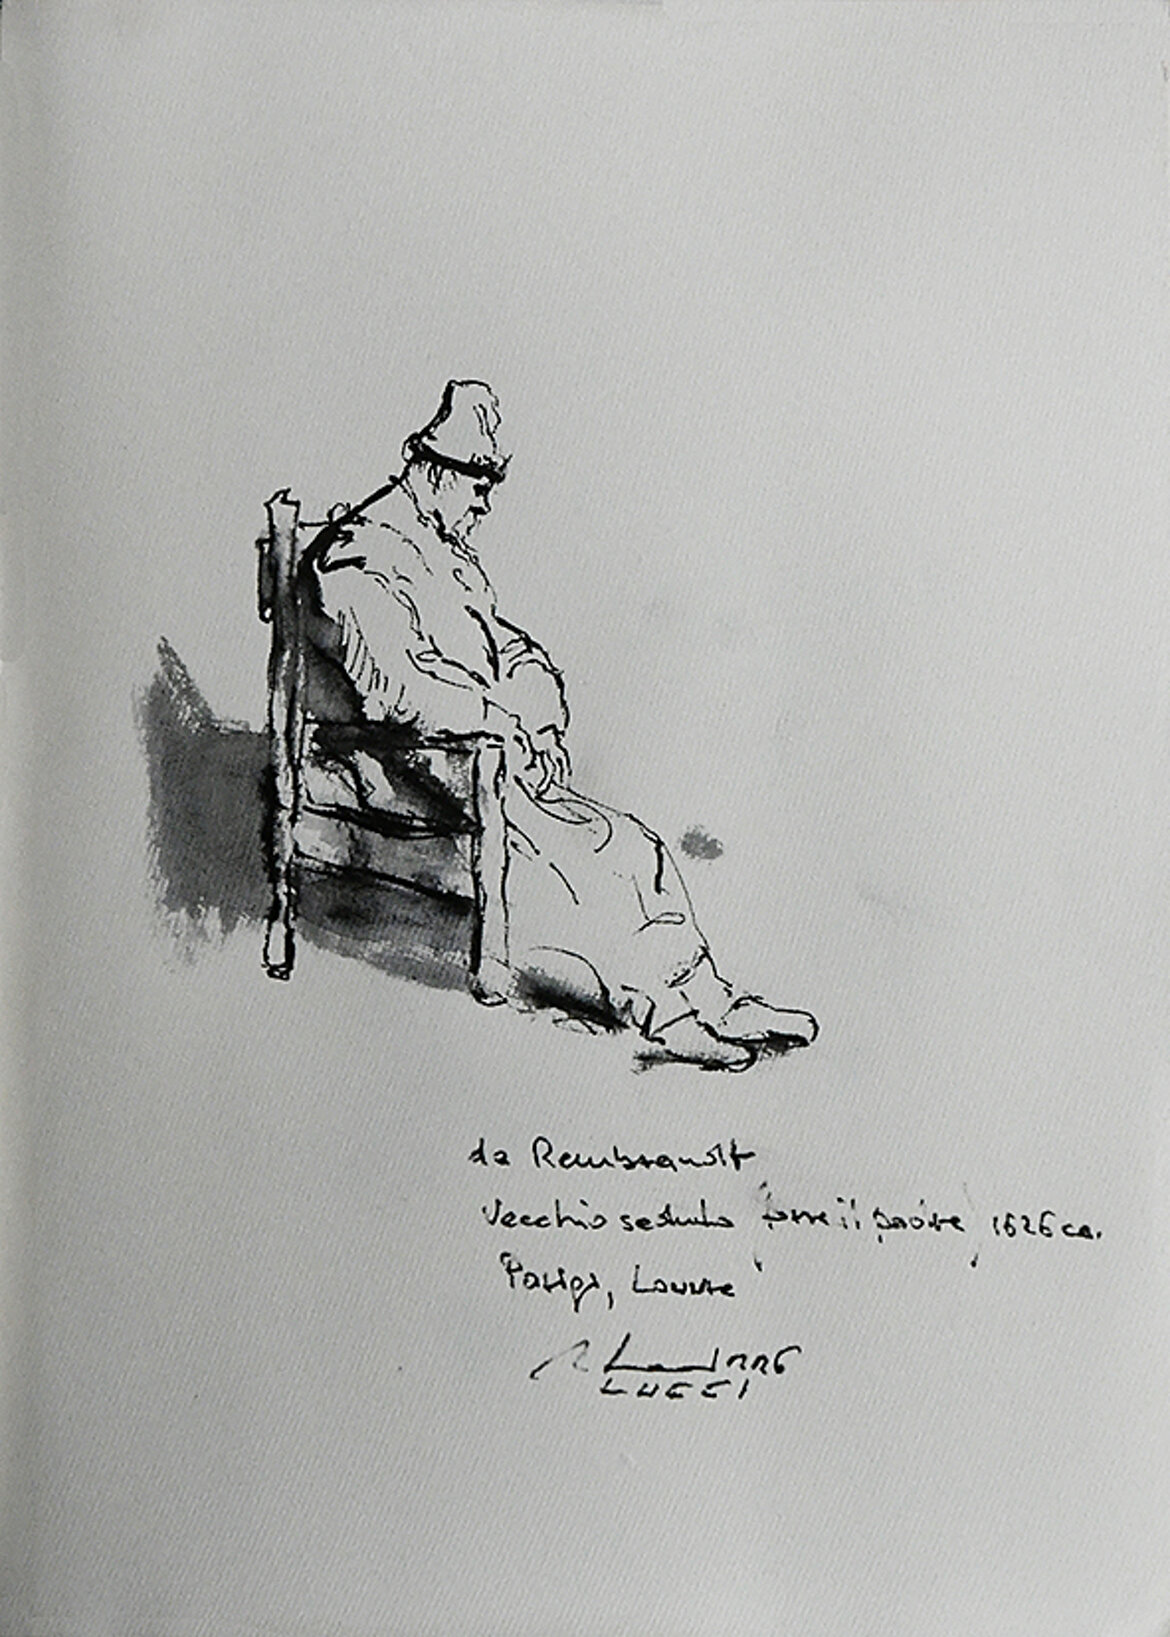 da Rembrandt
Vecchio seduto (forse il padre) 1626 ca.
Parigi, Louvre
LUCCI